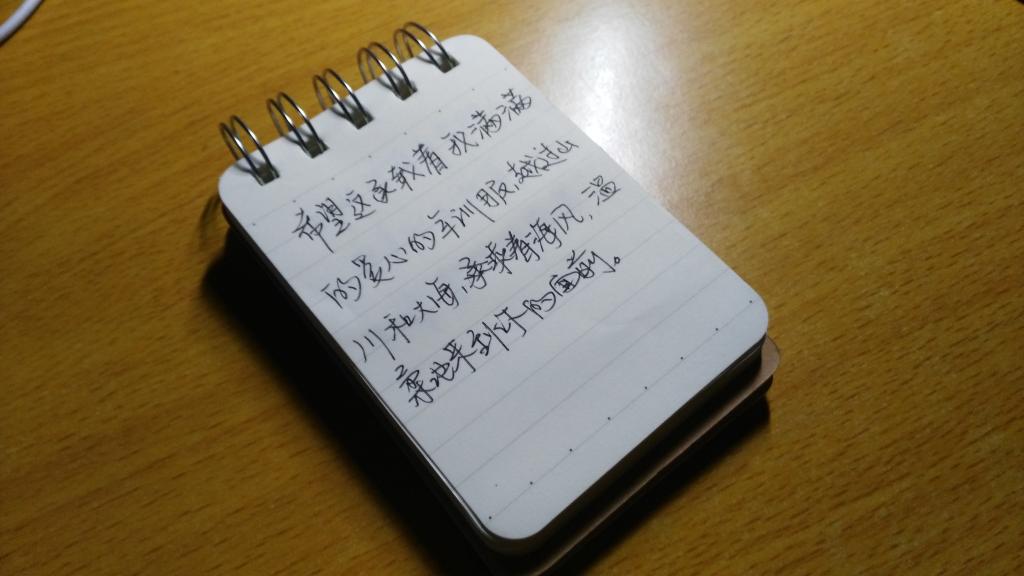 希望这承载着我满满
的爱心的军训服,越过山
川和大海,乘着海风,温
柔地来到你的面前。